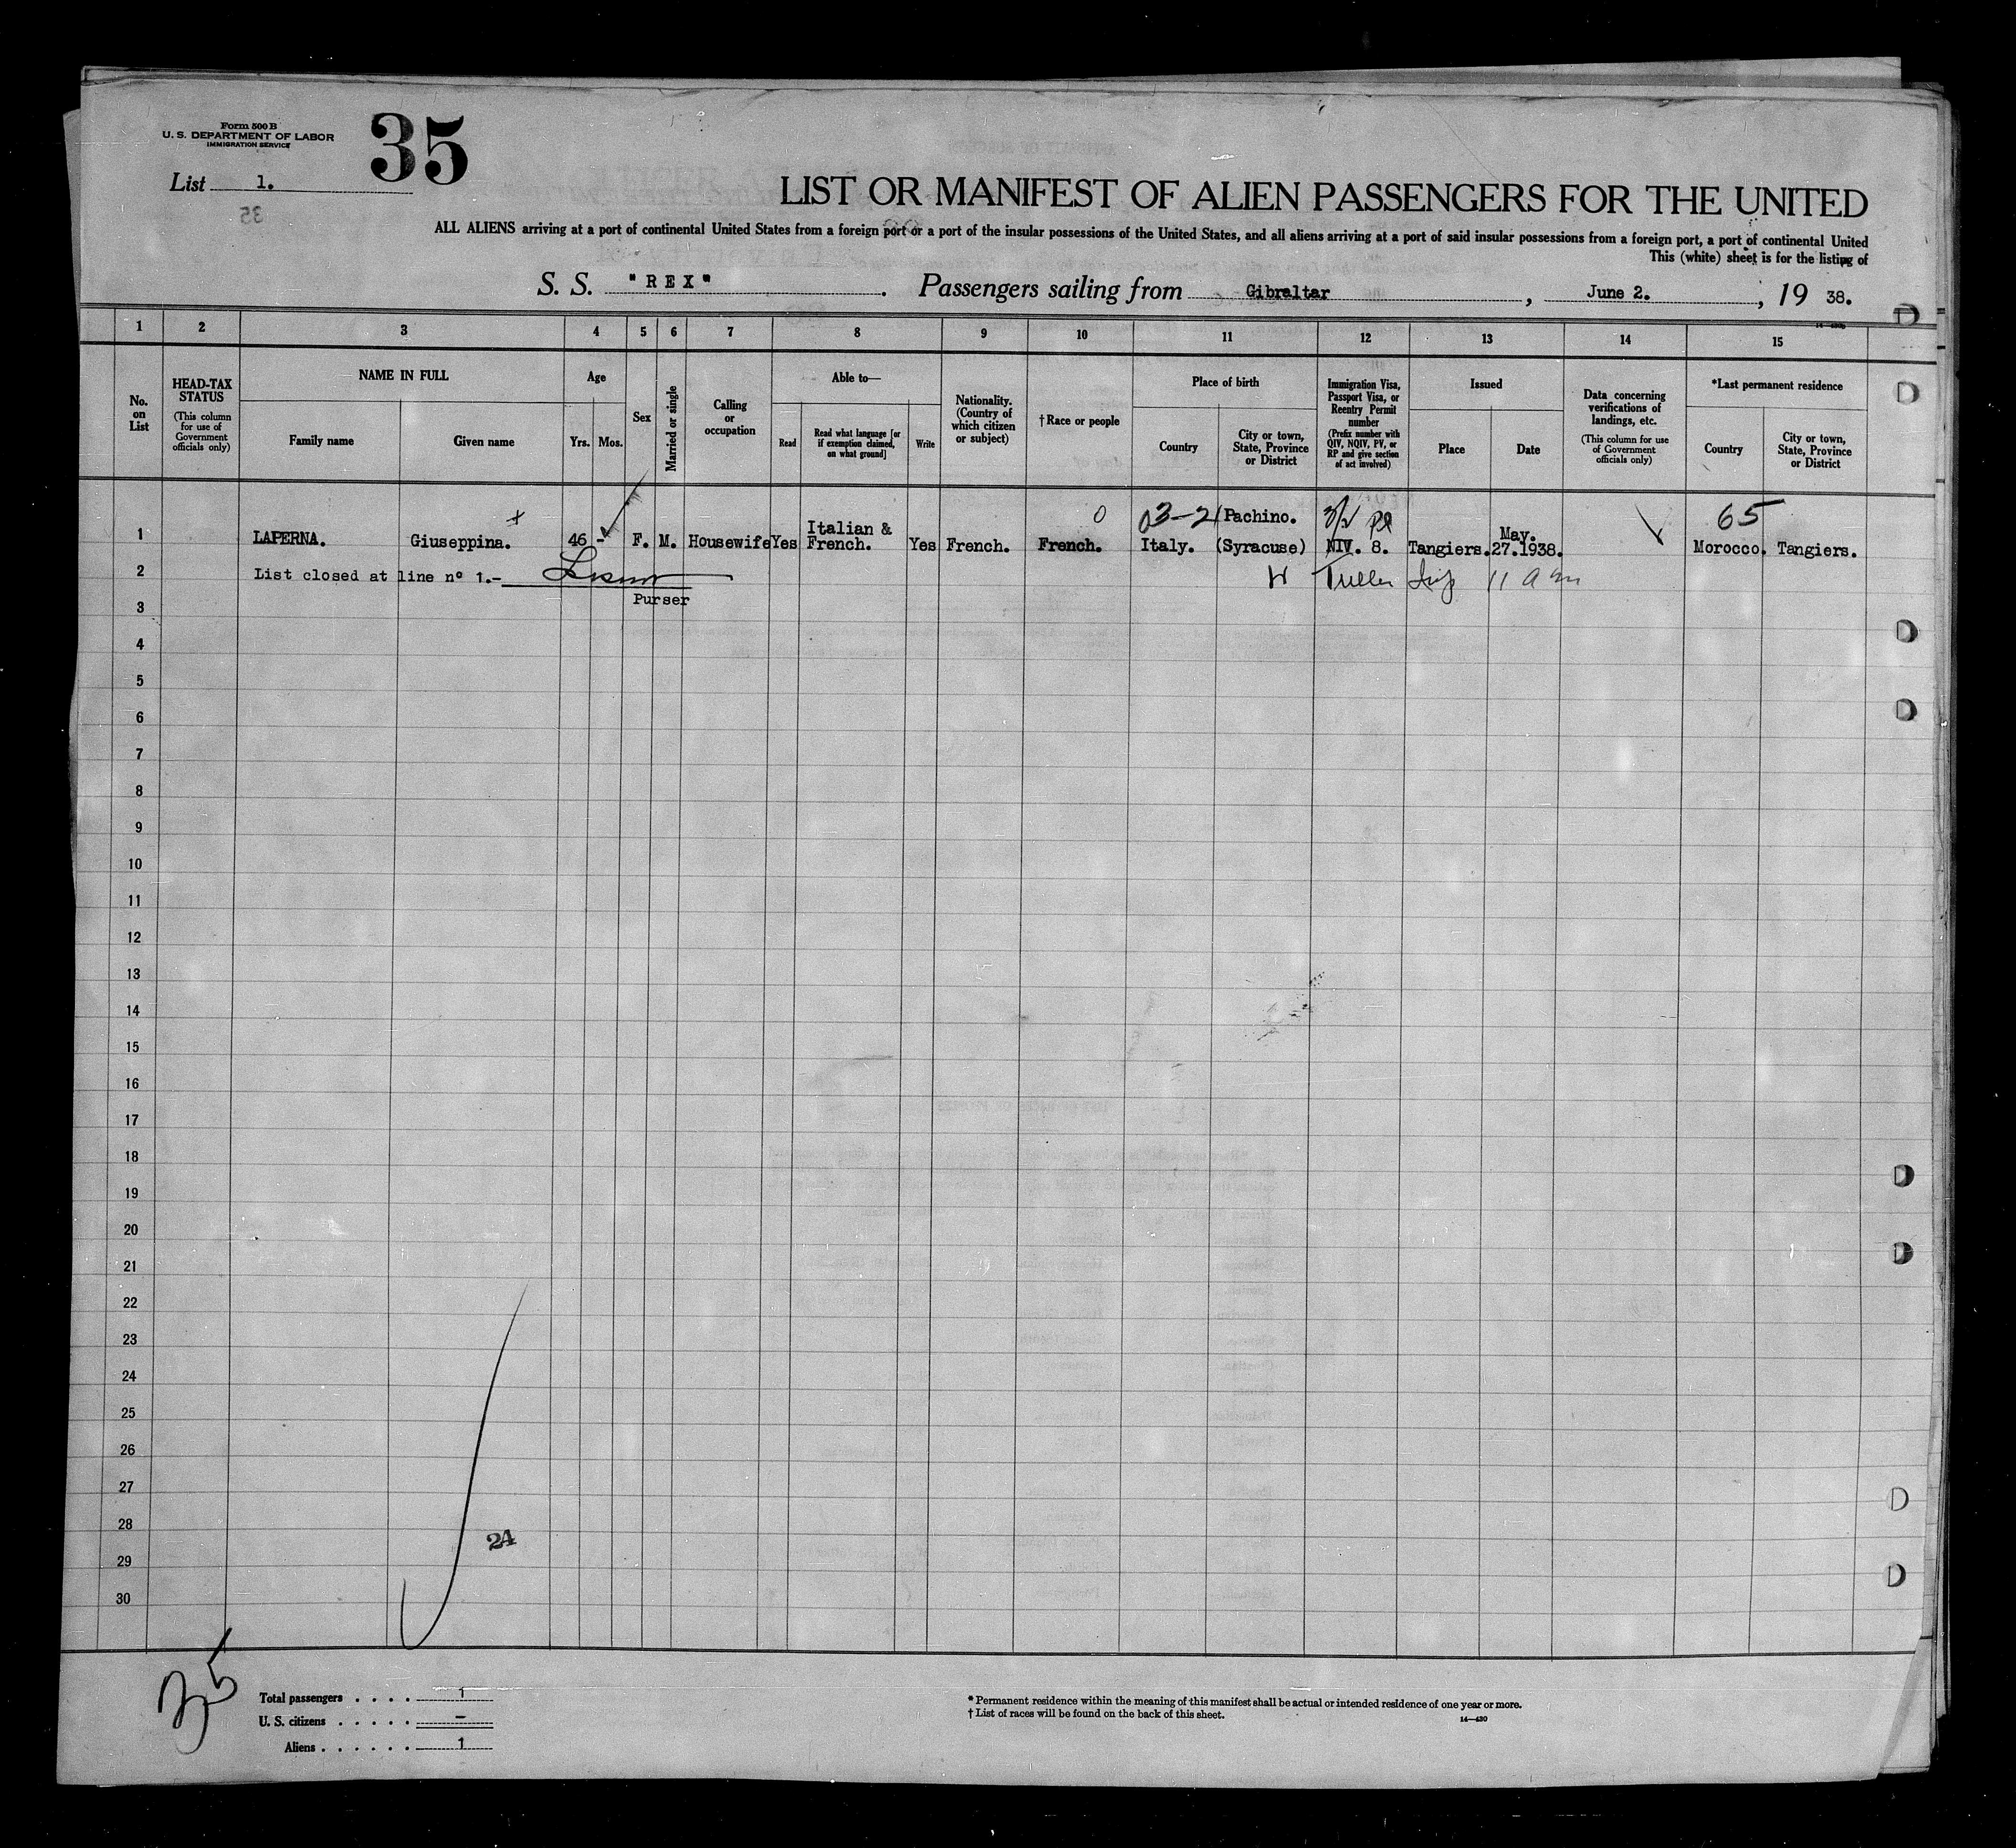 Form 500 B
U. S. DEPARTMENT OF LABOR
IMMIGRATION SERVICE
35
List 1.
35
LIST OR MANIFEST OF ALIEN PASSENGERS FOR THE UNITED
ALL ALIENS arriving at a port of continental United States from a foreign port or a port of the insular possessions of the United States, and all aliens arriving at a port of said insular possessions from a foreign port, a port of continental United
This (white) sheet is for the listing of
S. S. "REX". Passengers sailing from Gibraltar, June 2., 19 38.
1 2 3 4 5 6 7 8 9 10 11 12 13 14 15
No. on List
HEAD-TAX STATUS
(This column for use of Government officials only)
NAME IN FULL
Family name Given name
Age
Yrs. Mos.
Sex
Married or single
Calling or occupation
Able to—
Read
Read what language [or if exemption claimed, on what ground]
Write
Nationality. (Country of which citizen or subject)
†Race or people
Place of birth
Country
City or town, State, Province or District
Immigration Visa, Passport Visa, or Reentry Permit number
(Prefix number with QIV, NQIV, PV, or RP and give section of act involved)
Issued
Place Date
Data concerning verifications of landings, etc.
(This column for use of Government officials only)
*Last permanent residence
Country
City or town, State, Province or District
03-2 Pachino. 65
Italian & May.
1 LAPERNA. Giuseppina. 46 - F. M. Housewife Yes French. Yes French. French. Italy. (Syracuse) NIV. 8. Tangiers. 27.1938. Morocco. Tangiers.
2 List closed at line nº 1.- Tuller Insp 11 a m
Purser
3
4
5
6
7
8
9
10
11
12
13
14
15
16
17
18
19
20
21
22
23
24
25
26
27
28
24
29
30
35
Total passengers . . . . 1
U. S. citizens . . . . . -
Aliens . . . . . . 1
* Permanent residence within the meaning of this manifest shall be actual or intended residence of one year or more.
† List of races will be found on the back of this sheet.
14—430